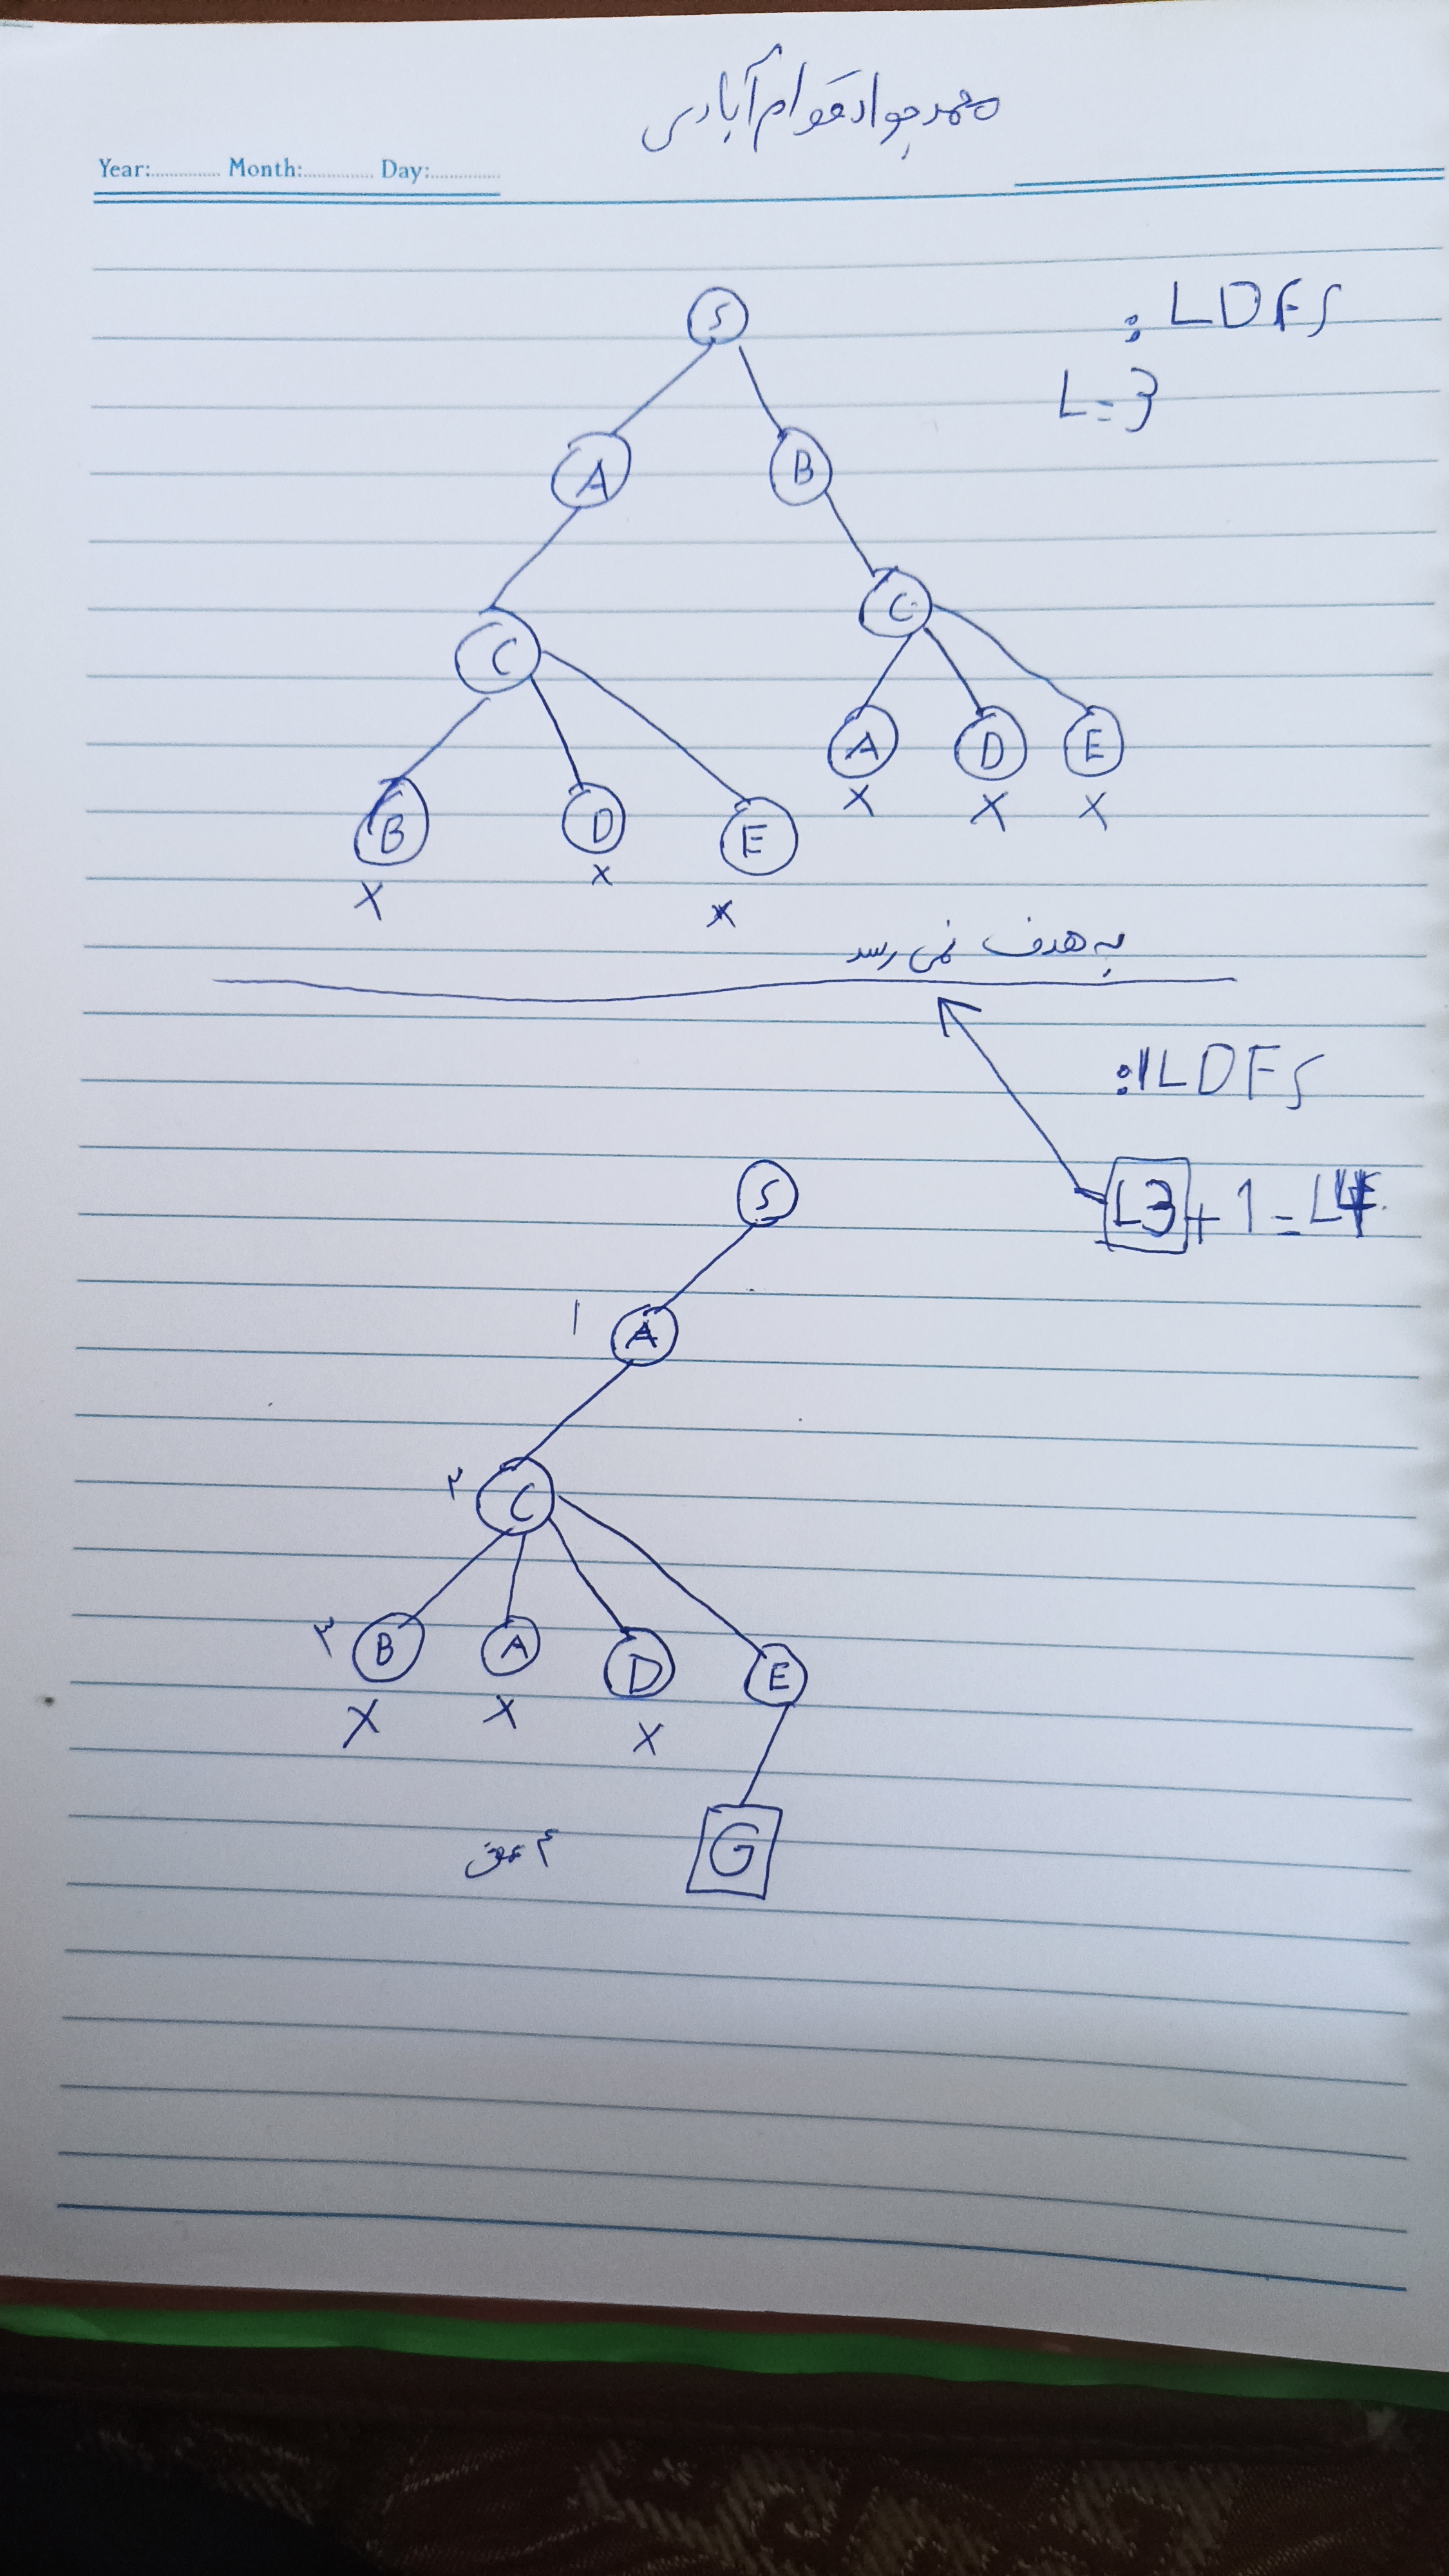 محمدجواد قوام آبادی
Year:............... Month:............... Day:...............
S
: LDFS
L=3
A B
C C
A D E
B D E
X X X
X X X
به هدف نمی رسد
:ILDFS
S
L3 + 1 = L4
۱ A
۲ C
۳ B A D E
X X X
۴ عمق G